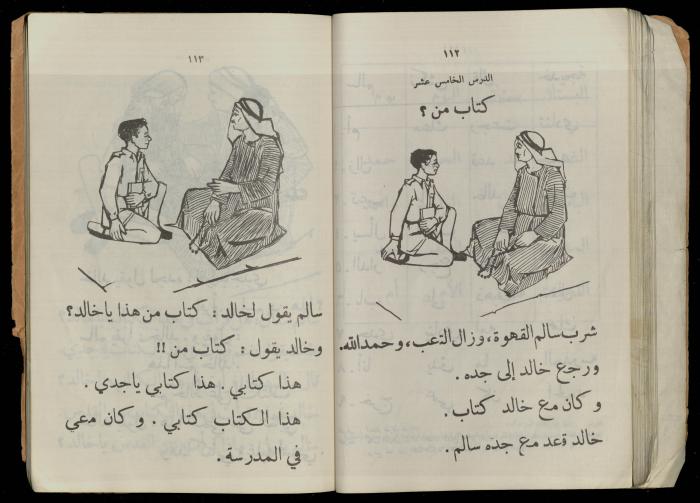 ١١٢
الدرس الخامس عشر
كتاب من ؟
شرب سالم القهوة، وزال التعب، وحمد الله.
ورجع خالد إلى جده .
وكان مع خالد كتاب .
خالد قعد مع جده سالم .
١١٣
سالم يقول لخالد : كتاب من هذا يا خالد؟
وخالد يقول : كتاب من !!
هذا كتابي . هذا كتابي ياجدي .
هذا الكتاب كتابي . وكان معي
في المدرسة .